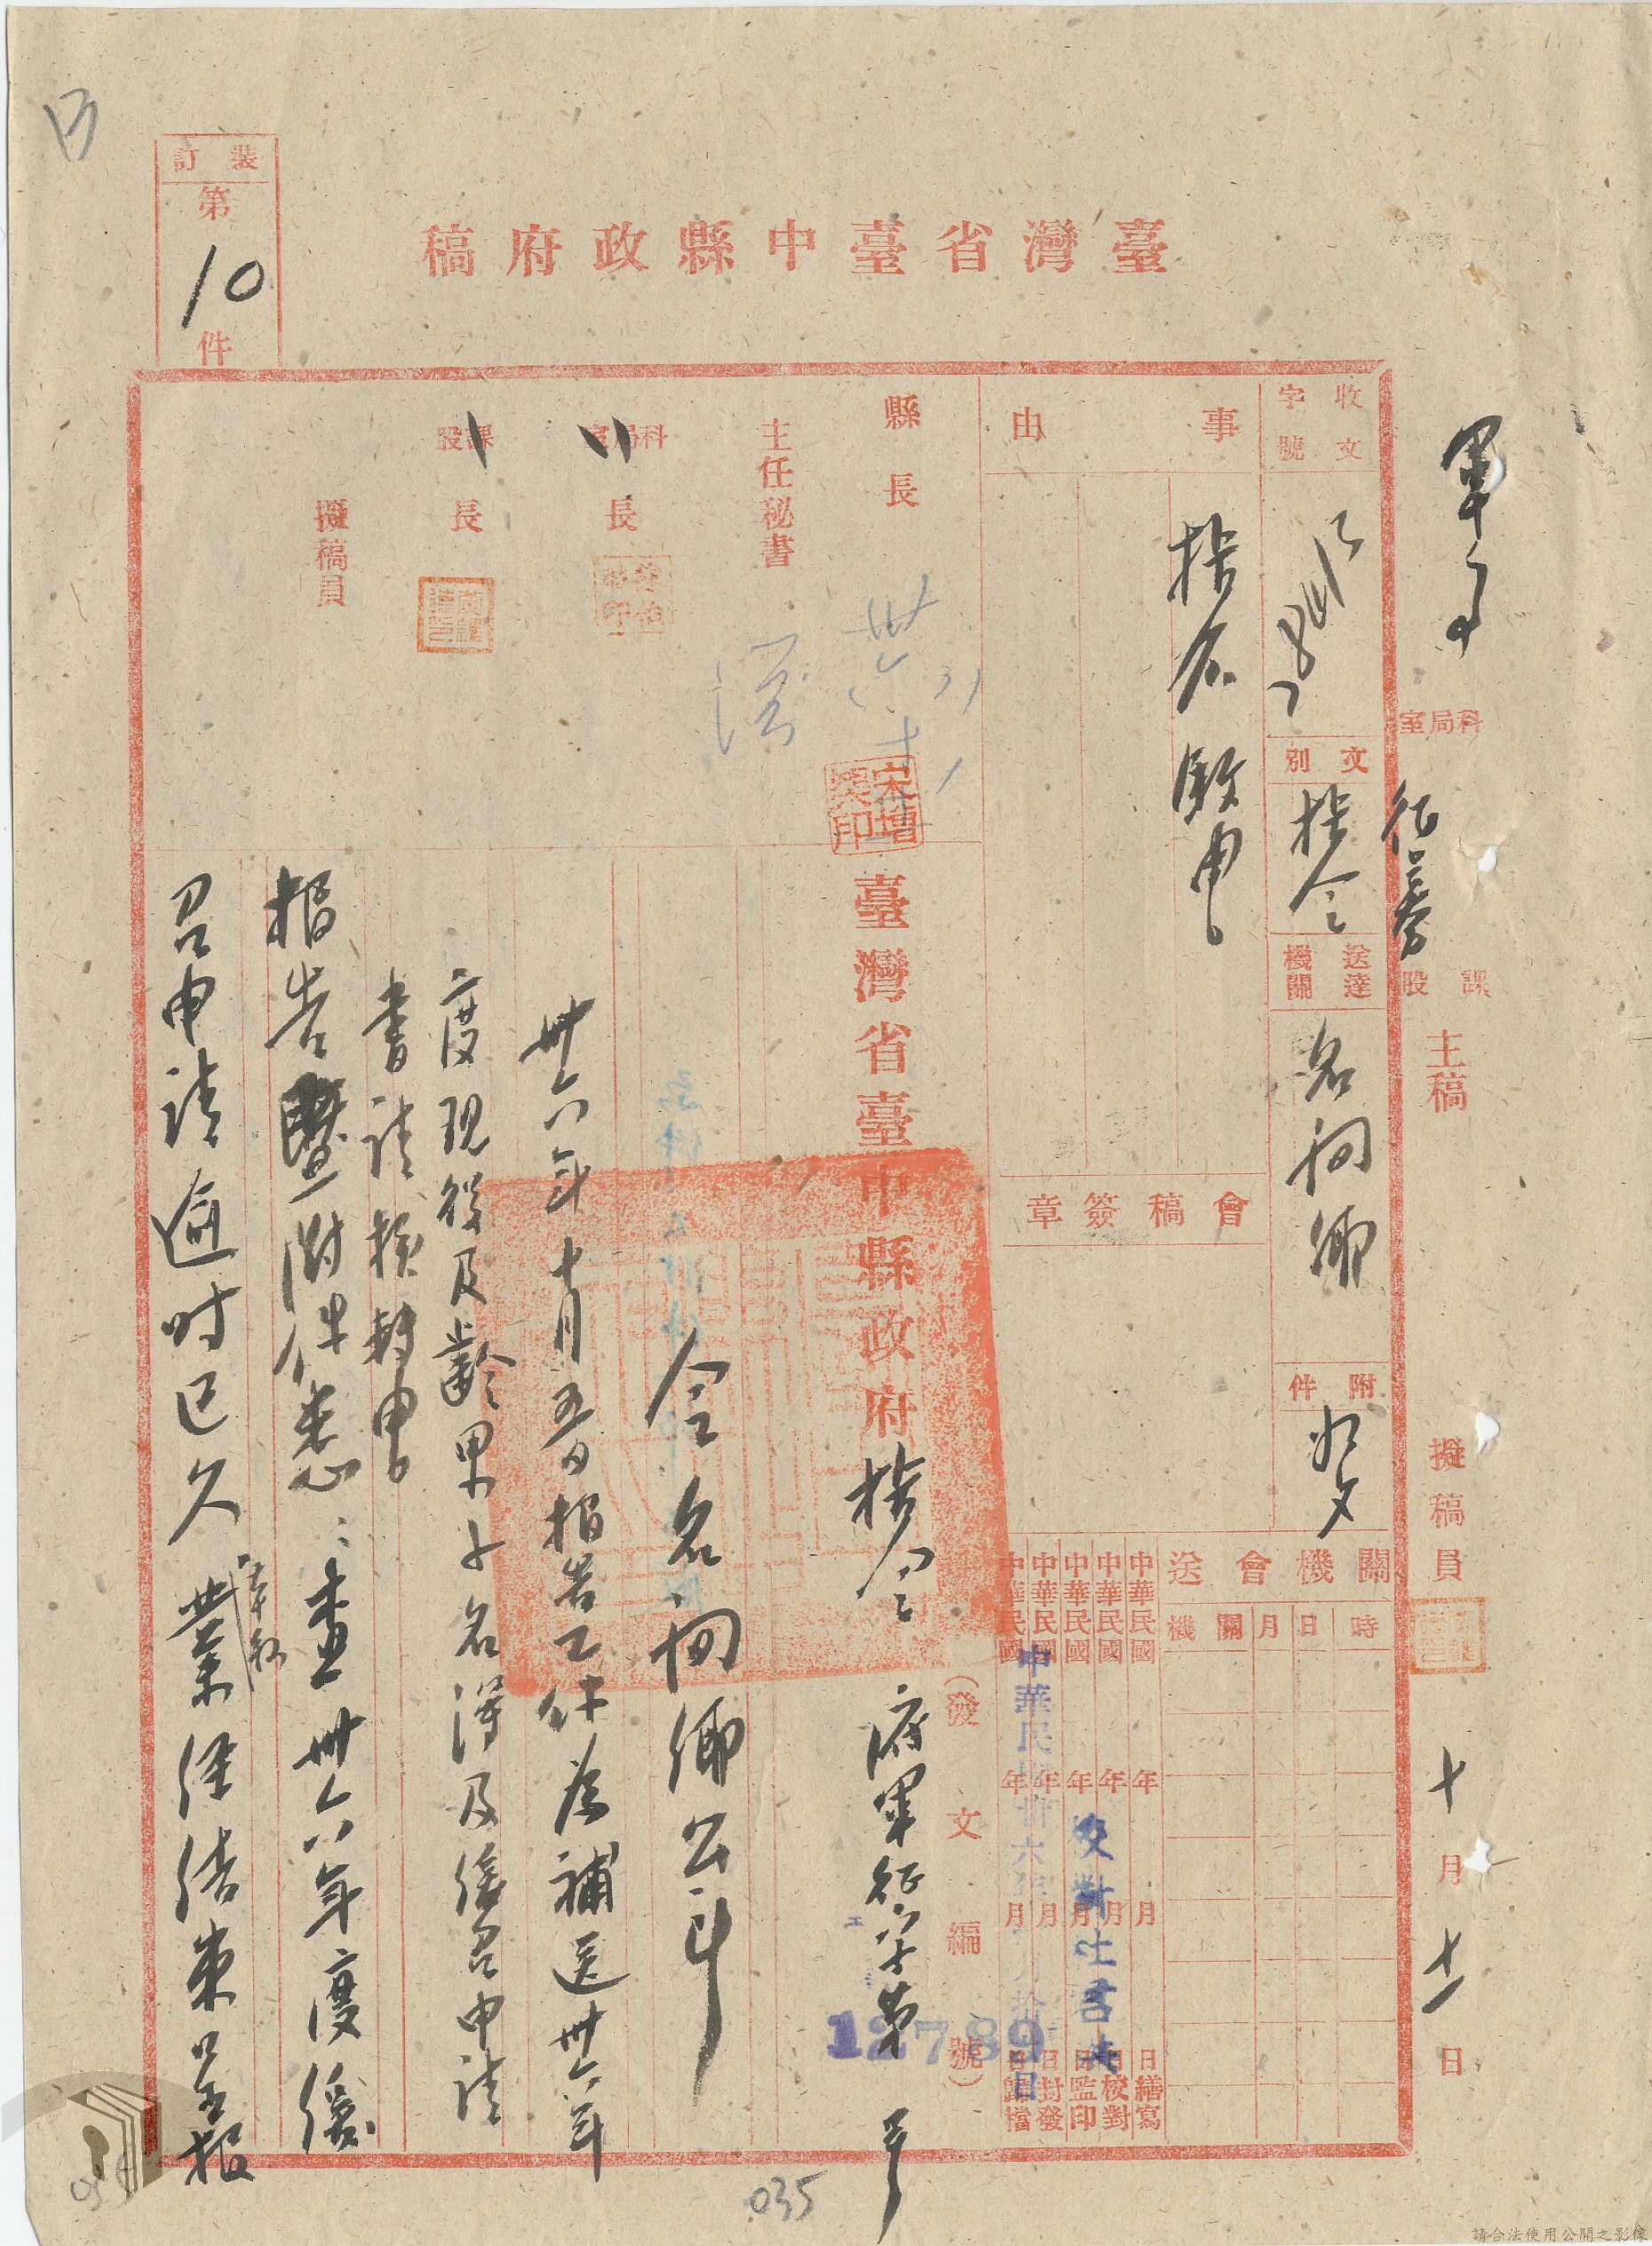 裝訂
第
10
件
臺灣省臺中縣政府稿
軍事
科局室
征募
課股
主稿
擬稿員
十月十一日
收文字號
文別
指令
送達機關
名間鄉
附件
如文
事由
指令
會稿簽章
關機會送
時
日
月
關機
中華民國 年 月 日繕寫
中華民國 年 月 日校對
中華民國 年 月 日監印
中華民國 年 月 日封發
中華民國 年 月 日歸檔
縣長
宋增榘印
主任秘書
科局室長
課股長
擬稿員
臺灣省臺中縣政府指令
(發文編號)
府軍征字第 號
12789
令名間鄉公所
卅六年十月 日報告乙件為補送卅六年
度現役及齡男子名簿及緩召申請
書請核轉由
報告暨附件悉:查卅六年度緩
召申請逾時已久
業經結束呈報
035
請合法使用公開之影像